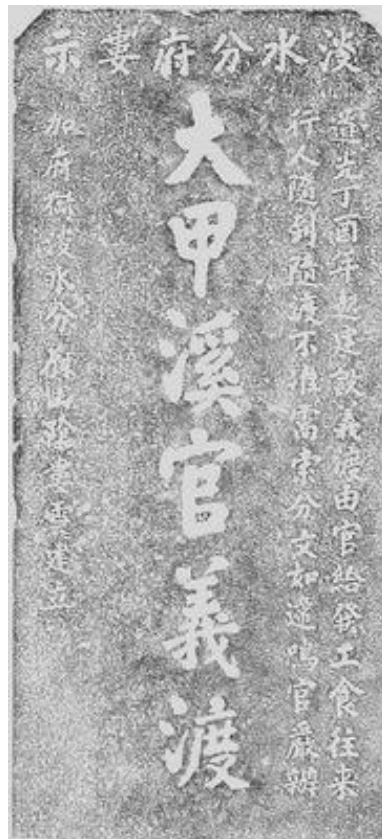 淡水分府婁示
道光丁酉年起建設義渡由官給發工食往來
行人隨到隨渡不准需索分文如違鳴官嚴辦
大甲溪官義渡
知府銜淡水分府山陰婁雲建立